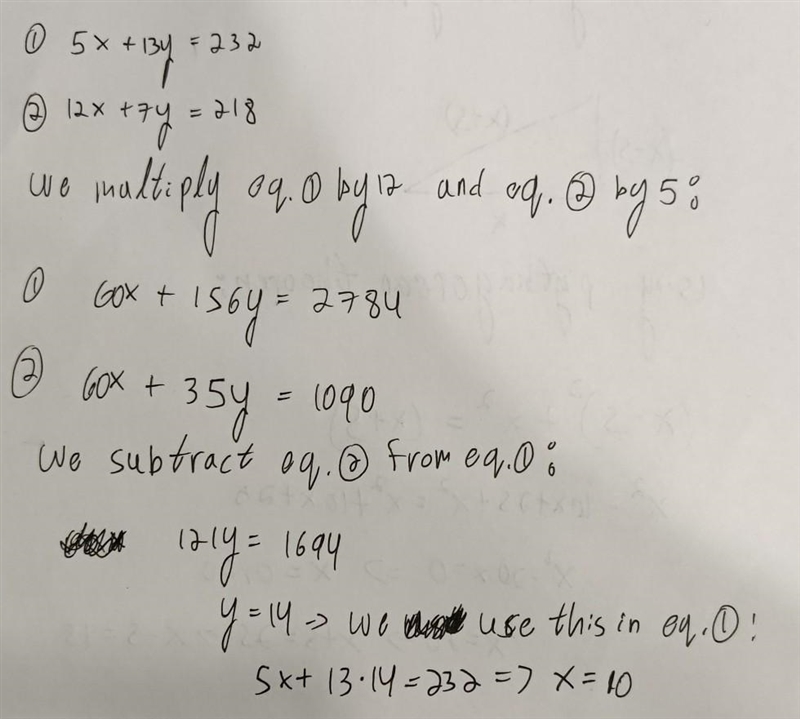 ① 5x + 13y = 232
② 12x + 7y = 218
We multiply eq. ① by 12 and eq. ② by 5:
① 60x + 156y = 2784
② 60x + 35y = 1090
We subtract eq. ② from eq. ①:
121y = 1694
y = 14 -> we use this in eq. ①:
5x + 13 · 14 = 232 => x = 10